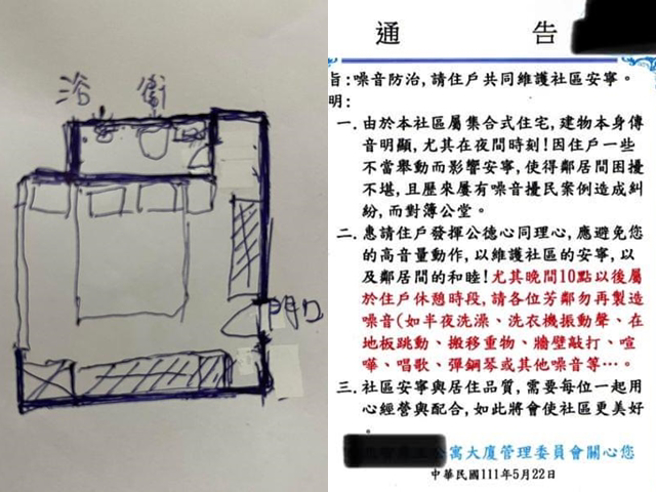 浴 衛
門口
通 告
旨:噪音防治,請住戶共同維護社區安寧。
明:
一. 由於本社區屬集合式住宅,建物本身傳
音明顯,尤其在夜間時刻!因住戶一些
不當舉動而影響安寧,使得鄰居間困擾
不堪,且歷來屢有噪音擾民案例造成糾
紛,而對薄公堂。
二. 惠請住戶發揮公德心同理心,應避免您
的高音量動作,以維護社區的安寧,以
及鄰居間的和睦!尤其晚間10點以後屬
於住戶休憩時段,請各位芳鄰勿再製造
噪音(如半夜洗澡、洗衣機振動聲、在
地板跳動、搬移重物、牆壁敲打、喧
嘩、唱歌、彈鋼琴或其他噪音等…。
三. 社區安寧與居住品質,需要每位一起用
心經營與配合,如此將會使社區更美好
。
公寓大廈管理委員會關心您
中華民國111年5月22日